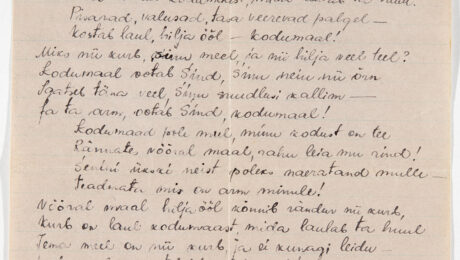 Pisarad, valusad, tasa veerevad palgel –
kostab laul, hilja ööl – kodumaal!
Miks nii kurb, Sinu meel, ja nii hilja veel teel?
Kodumaal ootab Sind, Sinu neiu nii õrn
Saatsid täna veel Sinu suudlusi kallim –
Ja ta arm, ootab Sind, kodumaal!
Kodumaad pole meil, minu kodust on tee
Rännates, võõral maal, rahu leia mu rind!
Senini ükski neist poleks naeratand mulle –
teadmata mis on arm minule!
Võõral maal hilja ööl kõnnib rändur nii kurb,
kurb on laul kodumaast, mida laulab ta huul
Tema meel on nii kurb, ja ei kunagi leidu –